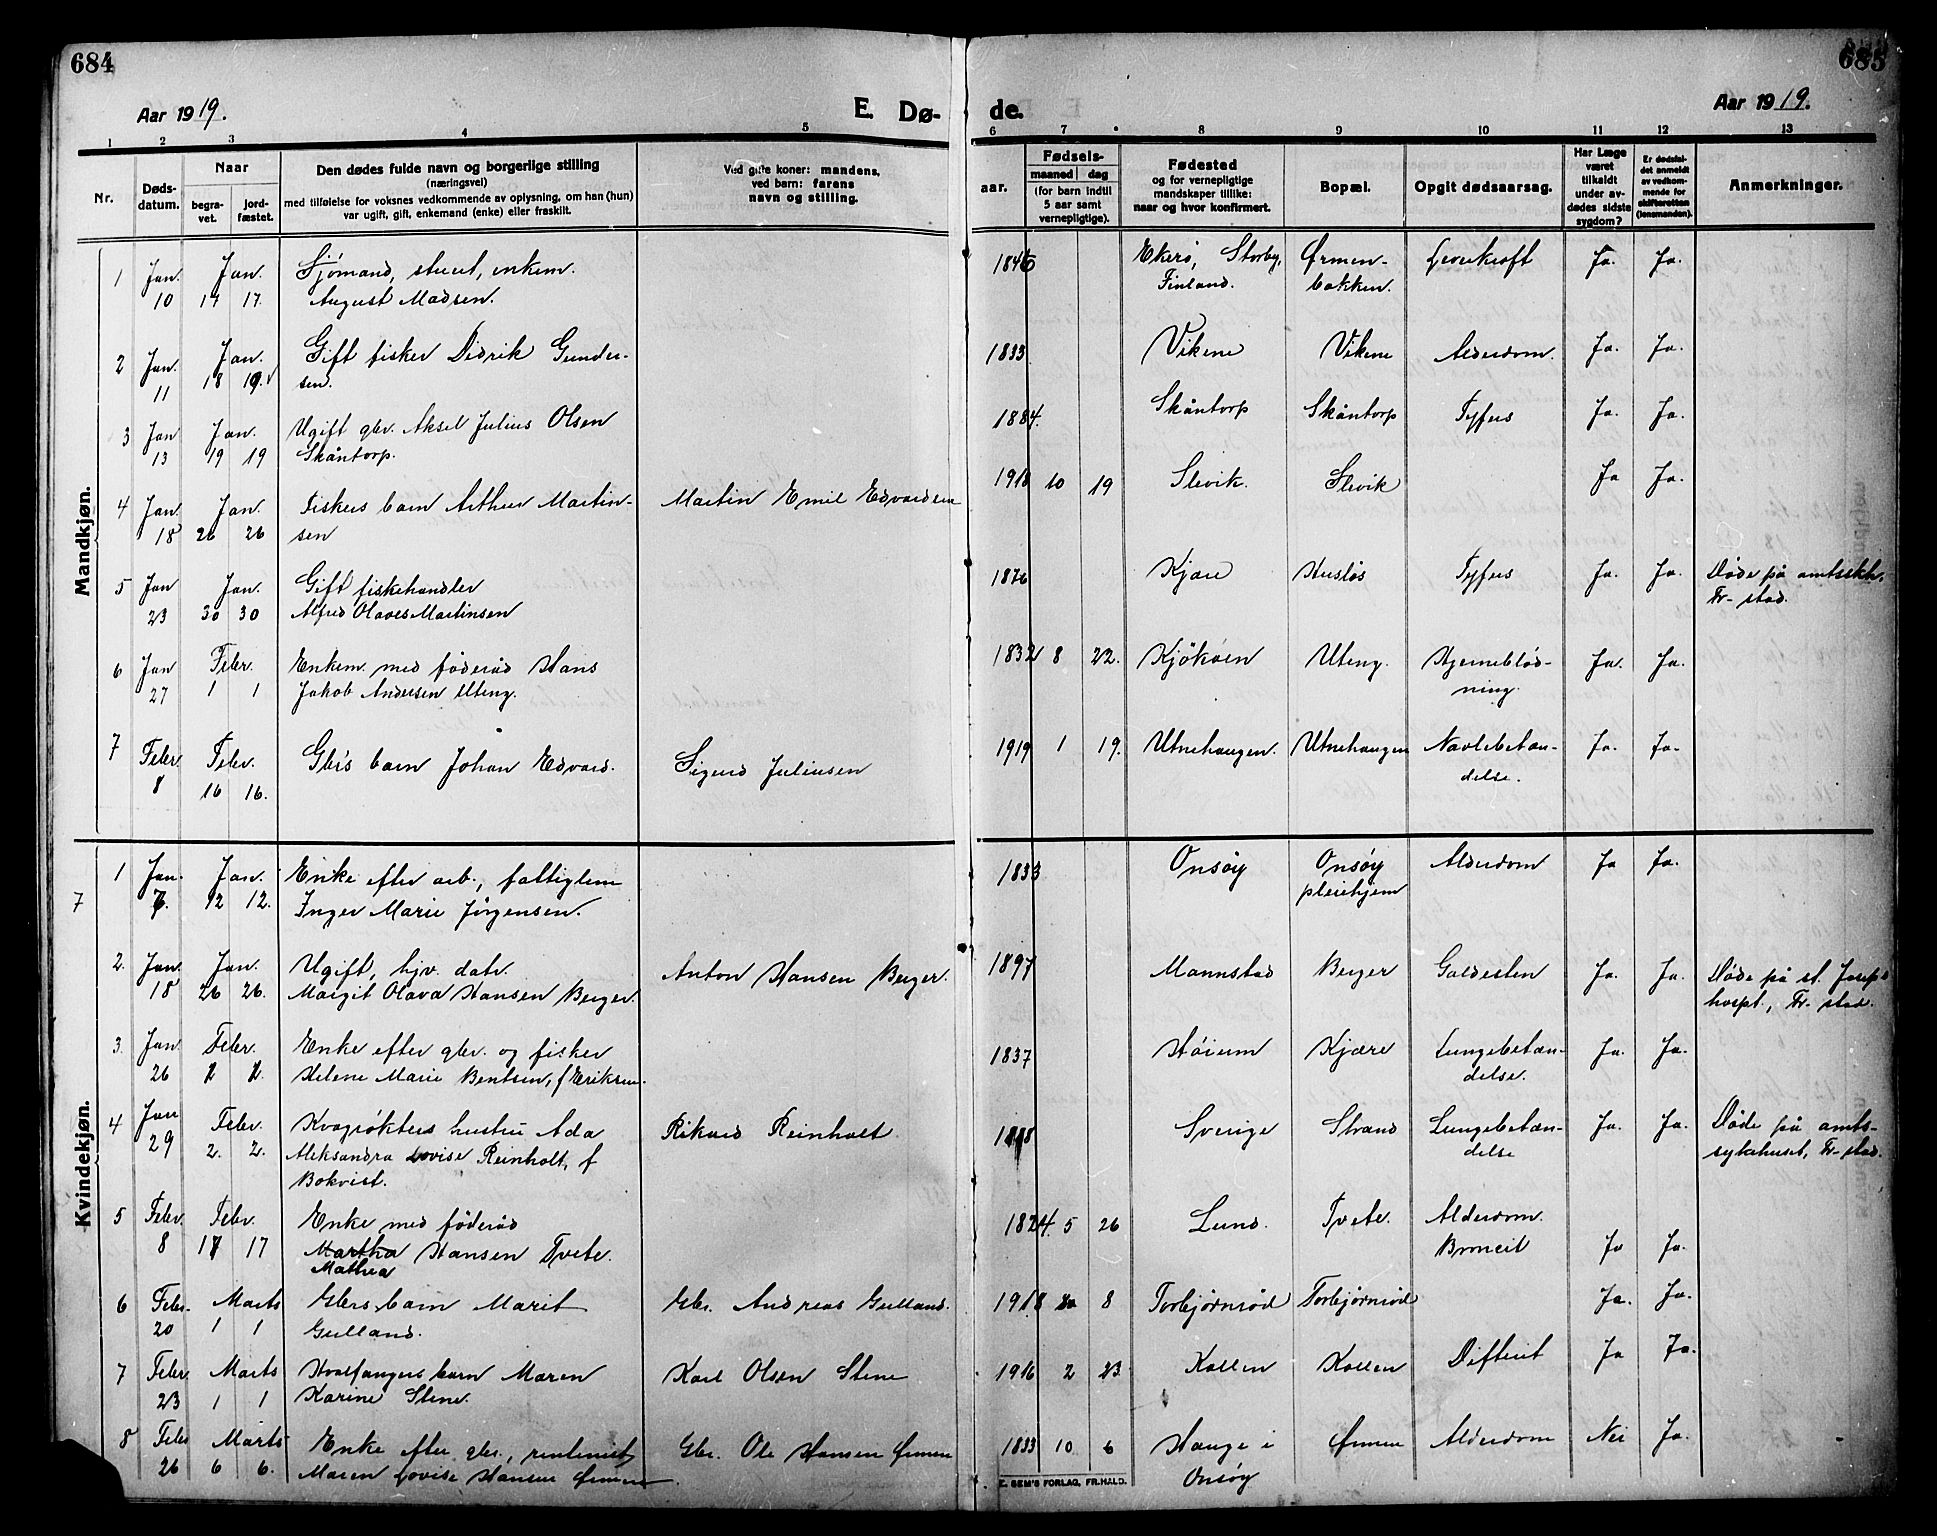 684
685
Aar 1919.
E. Dø-
de.
Aar 1919.
1 2 3 4 5 6 7 8 9 10 11 12 13
Nr.
Døds-
datum.
Naar
begra-
vet.
jord-
fæstet.
Den dødes fulde navn og borgerlige stilling
(næringsvei)
med tilføielse for voksnes vedkommende av oplysning, om han (hun)
var ugift, gift, enkemand (enke) eller fraskilt.
Ved gifte koner: mandens,
ved barn: farens
navn og stilling.
aar.
Fødsels-
maaned dag
(for barn indtil
5 aar samt
vernepligtige).
Fødested
og for vernepligtige
mandskaper tillike:
naar og hvor konfirmert.
Bopæl.
Opgit dødsaarsag.
Har Læge
været
tilkaldt
under av-
dødes sidste
sygdom?
Er dødsfal-
det anmeldt
av vedkom-
mende for
skifteretten
(lensmanden).
Anmerkninger.
Mandkjøn.
1 Jan. Jan. Sjømand, stuert, enkem. 1846 Ekerö, Storby, Ørmen- Ja. Ja.
10 17 17. August Madsen. Finland. bakken.
2 Jan. Jan. Gift fisker Didrik Gunder- 1833 Vikene Vikene Alderdom. Ja. Ja.
11 18 19. sen.
3 Jan Jan. Ugift gbr. Aksel Julius Olsen 1884. Skåntorp Skåntorp Tyfus Ja. Ja.
13 19 19 Skåntorp.
4 Jan Jan. Fiskers barn Arthur Martin- Martin Emil Edvardsen 1918 10 19 Slevik. Slevik Ja Ja.
18 26 26 sen
5 Jan Jan. Gift fiskehandler 1876 Kjære Husløs Tyfus Ja. Ja. Døde på amtsskh.
23 30 30 Alfred Olaves Martinsen Fr-stad.
6 Jan Febr. Enkem. med föderåd Hans 1832 8 22. Kjøkøen Uteng. Hjerneblød- Ja. Ja.
27 1 1 Jakob Andersen Uteng. ning.
7 Febr Febr. Gbr's barn Johan Edvard. Sigurd Juliusen 1919 1 19. Utnehaugen. Utnehaugen Navlebetæn- Ja. Ja.
8 16 16. delse.
Kvindekjøn.
7
1 Jan. Jan. Enke efter arb., fattiglem 1833 Onsøy Onsøy Alderdom Ja Ja.
12 12. Inger Marie Jørgensen. pleiehjem
2. Jan. Jan. Ugift, hjv. datr. Anton Hansen Berger. 1897 Mannstad Berger Galdesten Ja. Ja. Døde på st. Joseps
18 26 26. Margit Olava Hansen Berger. hospt., Fr-stad.
3. Jan. Febr. Enke efter gbr. og fisker 1837 Høium Kjære Lungebetæn- Ja. Ja.
26 2 2. Helene Marie Bentsen, f Eriksen. delse.
4 Jan Febr. Kvægrøkters hustru Ada Rikard Reinholt. Sverige Strand Lungebetæn- Ja. Ja. Døde på amts-
29 2. 2. Aleksandra Lovise Reinholt, f delse sykehuset, Fr-stad.
Bokvist.
5 Febr. Febr. Enke med föderåd 1824. 5 26 Lund. Tvete. Alderdom.
8 17 17 Martha Hansen Tvete. Broncit Ja Ja.
Mathea
6 Febr. Marts Gbrs. barn Marit Gbr. Andreas Gulland. 1918 8 Torbjørnrød Torbjørnrød Ja. Ja.
20 1 1 Gulland.
7 Febr Marts Hvalfangers barn Maren Karl Olsen Stene 1916 2 23. Kallen Kallen Difterit Ja Ja.
23 1 1 Karine Stene.
8 Febr Marts Enke efter gbr., rentenist Gbr. Ole Hansen Ørmen 1833 10 6 Hauge i Ørmen Alderdom Nei Ja.
26 6 6. Maren Lovise Hansen Ørmen Onsøy
E. SEM'S FORLAG, FR.HALD.